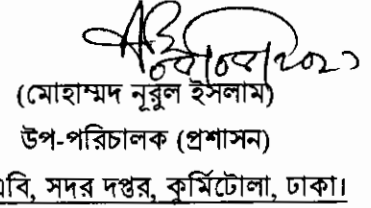 (মোহাম্মদ নূরুল ইসলাম)
উপ-পরিচালক (প্রশাসন)
এবি, সদর দপ্তর, কুর্মিটোলা, ঢাকা।